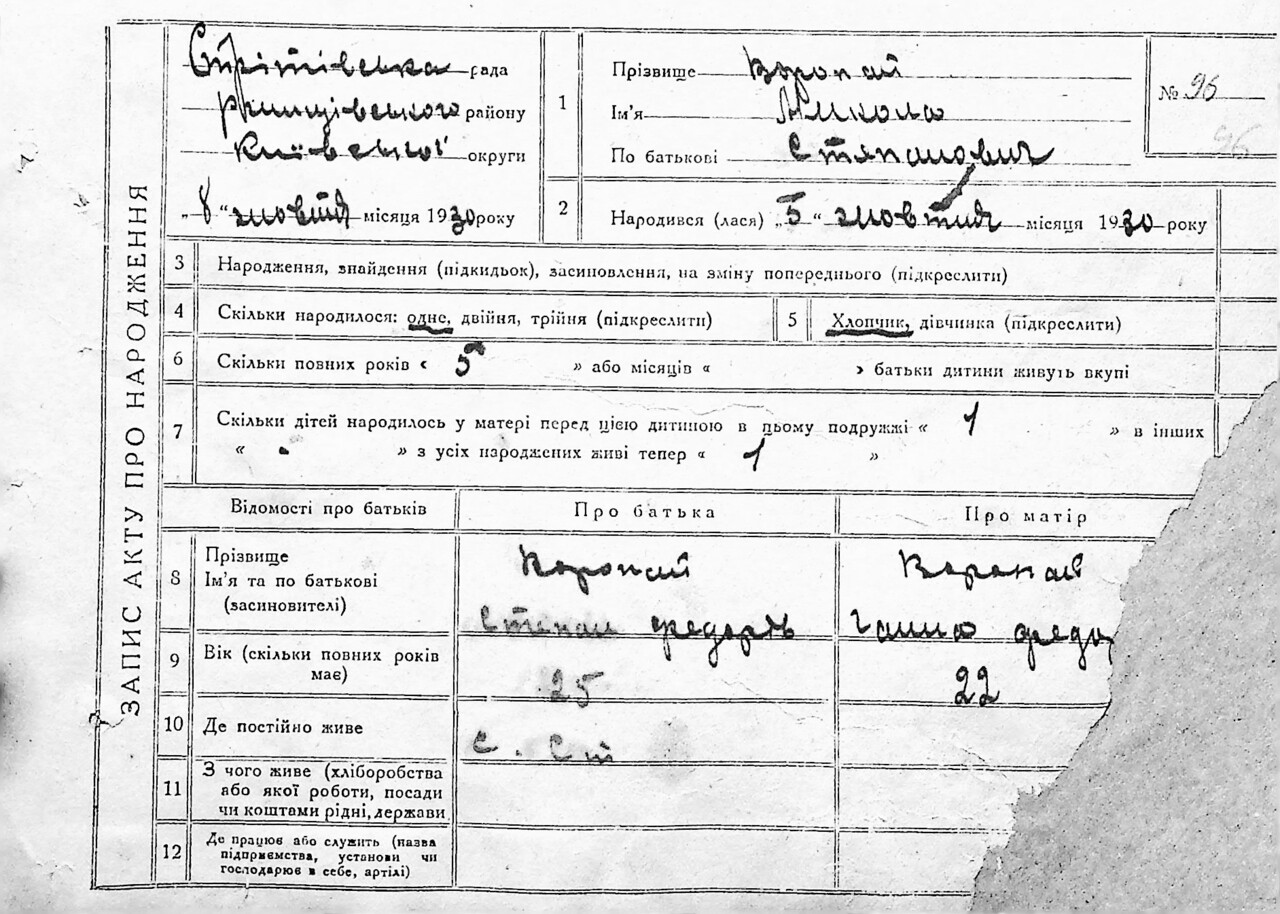 ЗАПИС АКТУ ПРО НАРОДЖЕННЯ
Стрітівська рада
Ржищівського району
Київської округи
„8“ жовтня місяця 1930 року
1
Прізвище Воропай
Ім'я Микола
По батькові Стяпанович
№ 96
96
2 Народився (лася) „5“ жовтня місяця 1930 року
3 Народження, знайдення (підкидьок), засиновлення, на зміну попереднього (підкреслити)
4 Скільки народилося: одне, двійня, трійня (підкреслити)
5 Хлопчик, дівчинка (підкреслити)
6 Скільки повних років « 5 » або місяців « › батьки дитини живуть вкупі
7 Скільки дітей народилось у матері перед цією дитиною в цьому подружжі « 1 » в інших
« - » з усіх народжених живі тепер « 1 »
Відомості про батьків Про батька Про матір
8 Прізвище Воропай Воропай
Ім'я та по батькові
(засиновителі) Степан Федорів Ганна Федо
9 Вік (скільки повних років
має) 25 22
10 Де постійно живе с. Ст
11 З чого живе (хліборобства
або якої роботи, посади
чи коштами рідні, держави
12 Де працює або служить (назва
підприємства, установи чи
господарює в себе, артілі)